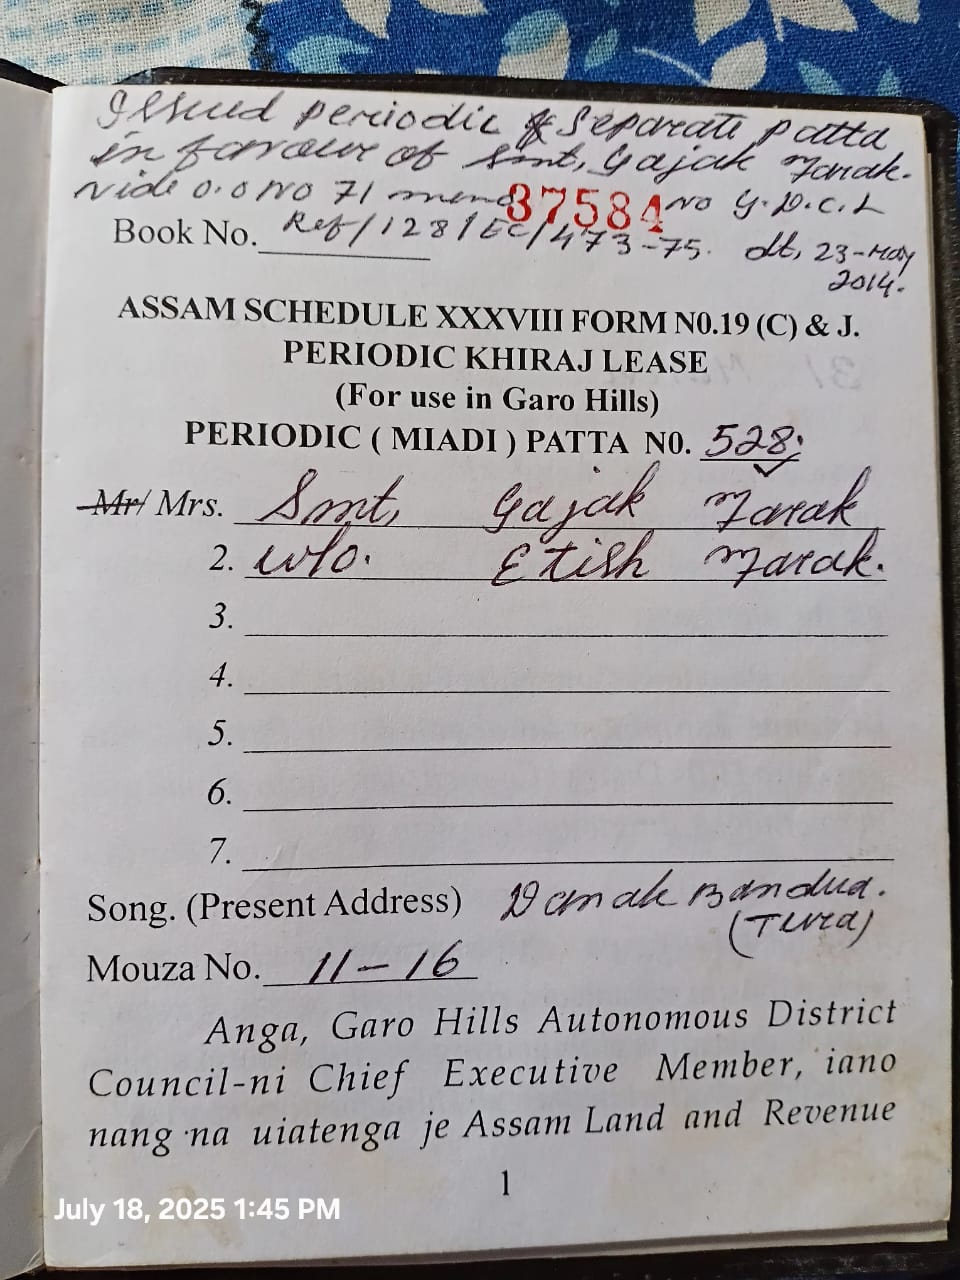 Issued periodic & Separate patta
in favour of Smt, Gajak Marak.
vide o.o NO 71 memo NO G.D.C.L
37584
Book No. Ref/128/EC/473-75. dt, 23-May
2014.
ASSAM SCHEDULE XXXVIII FORM N0.19 (C) & J.
PERIODIC KHIRAJ LEASE
(For use in Garo Hills)
PERIODIC ( MIADI ) PATTA N0. 528.
Mr/ Mrs. Smt, Gajak Marak
2. W/o. Etish Marak.
3.
4.
5.
6.
7.
Song. (Present Address) Danak
(Tura)
Mouza No. 11-16
Anga, Garo Hills Autonomous District
Council-ni Chief Executive Member, iano
nang na uiatenga je Assam Land and Revenue
1
July 18, 2025 1:45 PM